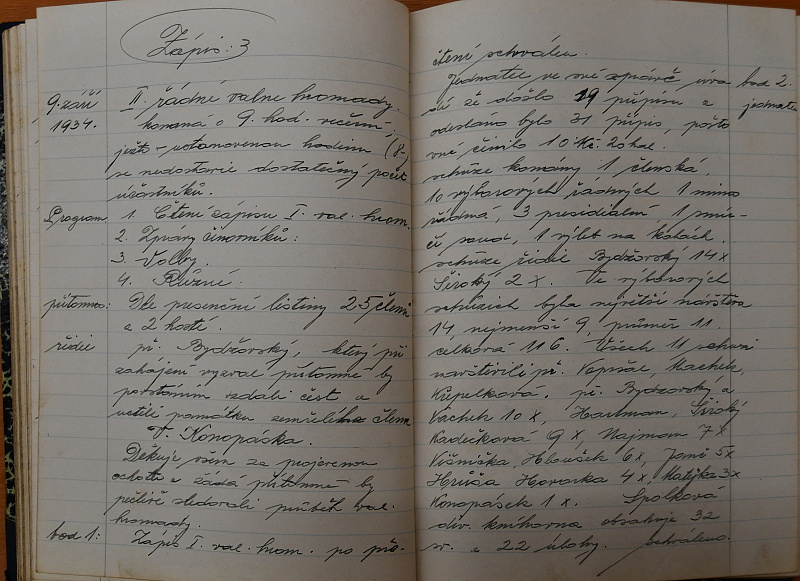 Zápis: 3
9. září II. řádné valné hromady,
1934. konané o 9. hod. večerní,
ježto ustanovenou hodinu (8-
se nedostavil dostatečný počet
účastníků.
Program 1. Čtení zápisu I. val. hrom.
2. Zprávy činovníků:
3. Volby.
4. Různé.
přítomno: Dle presenční listiny 25 členů
a 2 hosté.
řídil př. Bydžovský, který při
zahájení vyzval přítomné by
povstáním vzdali čest a
uctili památku zemřelého člena
V. Konopáska.
Děkuje všem za projevenou
ochotu a žádá přítomné by
pečlivě sledovali průběh val.
hromady.
bod 1: Zápis I. val. hrom. po pře-
čtení schválen.
Jednatel ve své zprávě uvá- bod 2.
dí že došlo 19 přípisů a jednatel
odesláno bylo 31 přípis, pošto
vné činilo 10 Kč. 20 hal.
schůze konány 1 členská,
10 výborových řádných 1 mimo
řádná, 3 presidiální, 1 smír-
čí soud, 1 výlet na kolách.
schůze řídil Bydžovský 14 x
Široký 2 x. Ve výborových
schůzích byla největší návštěva
14 nejmenší 9, průměr 11.
celková 116. Všech 11 schůzí
navštívili př. Machek,
Křepelková. př. Bydžovský a
Vachek 10 x, Hartman, Široký
Kadečková 9 x, Najman 7 x
Višnička, Hloušek 6 x, 5 x
Hrůša Hovorka 4 x, Matějka 3 x
Konopásek 1 x. Spolková
div. knihovna obsahuje 32
sv. a 22 úlohy. schváleno.